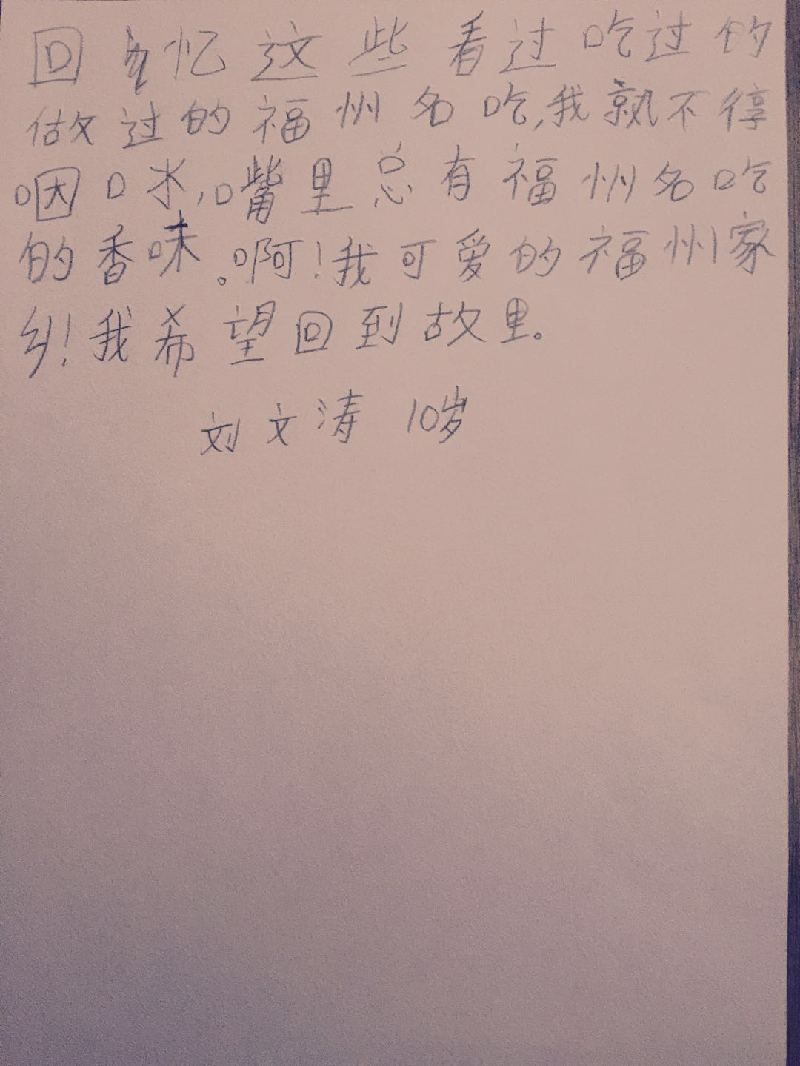 回忆这些看过吃过的
做过的福州名吃,我孰不得
咽口水,嘴里总有福州名吃
的香味。啊!我可爱的福州家
乡!我希望回到故里。
刘文涛 10岁